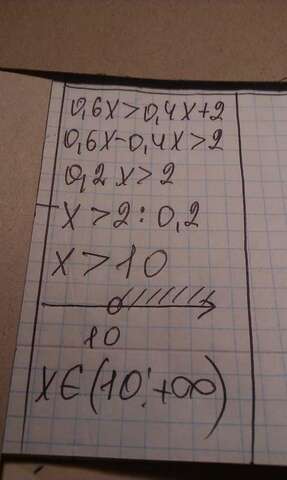 0,6x>0,4x+2
0,6x-0,4x>2
0,2x>2
x>2:0,2
x>10
10
x∈(10;+∞)